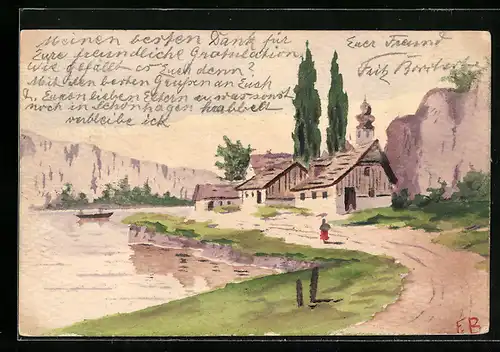 Meinen besten Dank für
Eure freundliche Gratulation
Wie gefällt es Euch denn?
Mit den besten Grüßen an Euch
u. Euren lieben Eltern u. was sonst
noch in Schönhagen krabbelt
verbleibe ich
Euer Freund
Fritz
IL
F.B